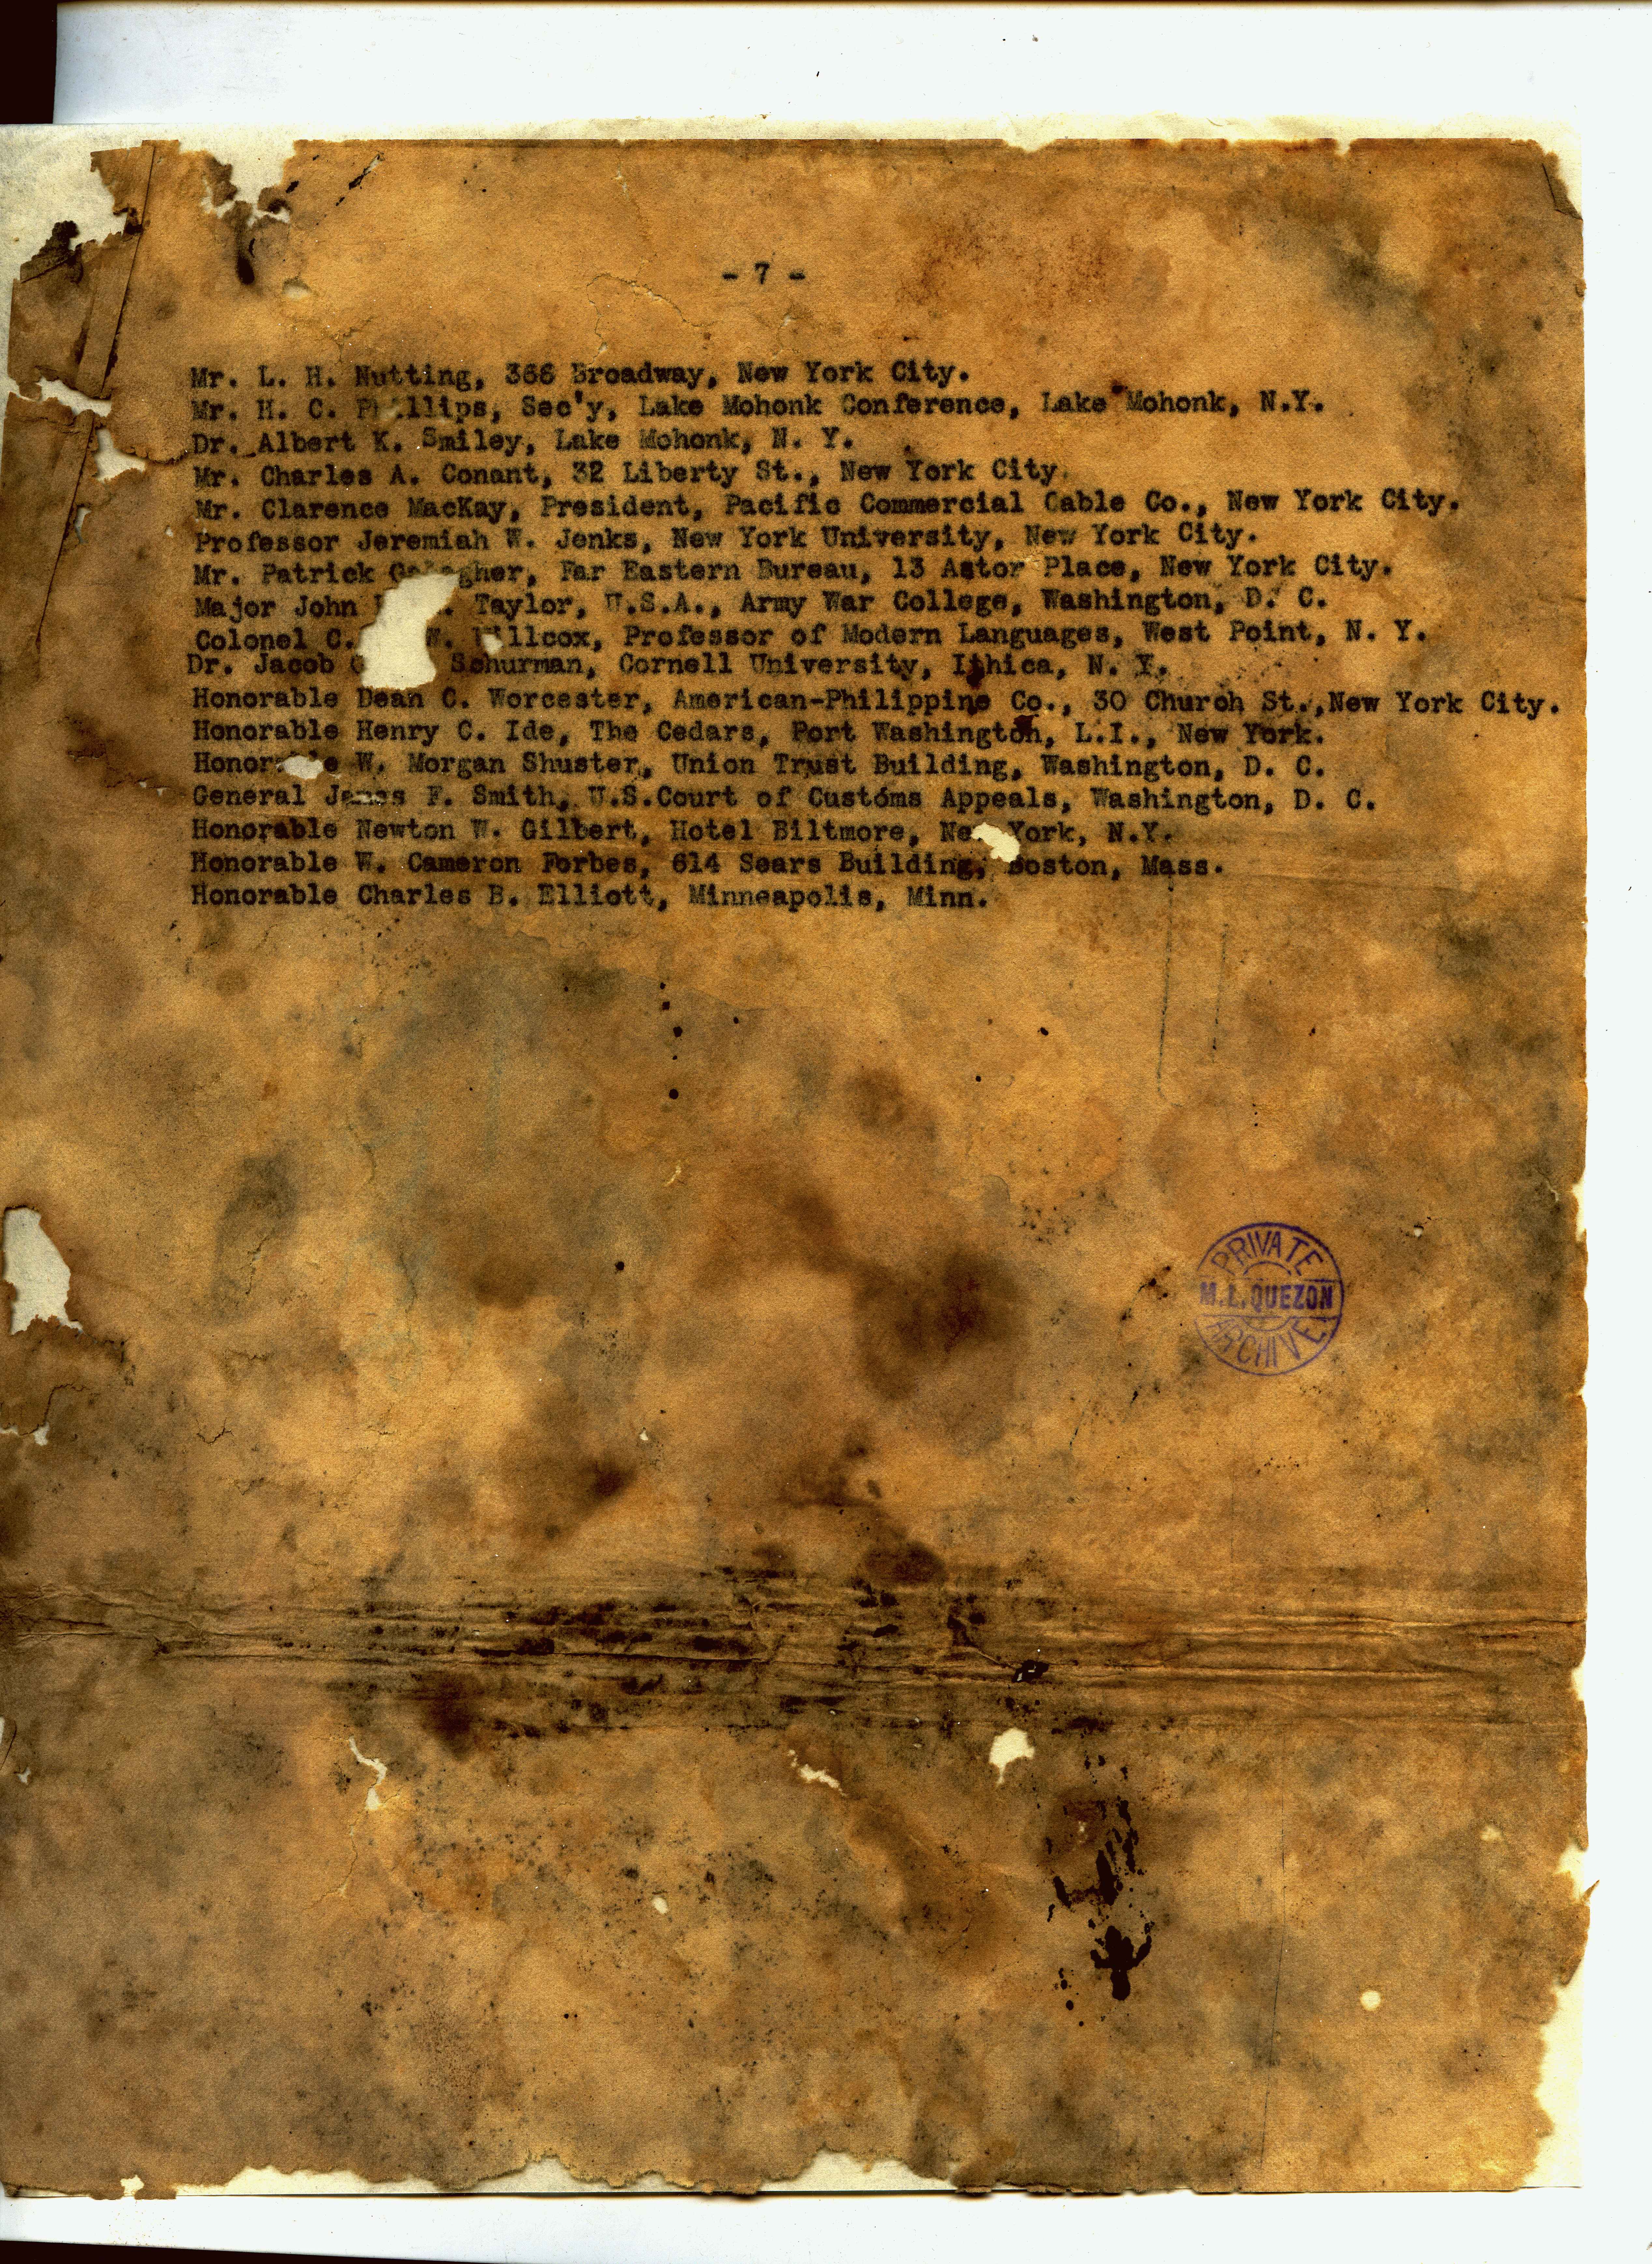 - 7 -
Mr. L. H. Nutting, 366 Broadway, New York City.
Mr. H. C. Phillips, Sec'y, Lake Mohonk Conference, Lake Mohonk, N.Y.
Dr. Albert K. Smiley, Lake Mohonk, N. Y.
Mr. Charles A. Conant, 32 Liberty St., New York City.
Mr. Clarence MacKay, President, Pacific Commercial Cable Co., New York City.
Professor Jeremiah W. Jenks, New York University, New York City.
Mr. Patrick Gallagher, Far Eastern Bureau, 13 Astor Place, New York City.
Major John Taylor, U.S.A., Army War College, Washington, D. C.
Colonel C. W. Willcox, Professor of Modern Languages, West Point, N. Y.
Dr. Jacob Schurman, Cornell University, Ithica, N. Y.
Honorable Dean C. Worcester, American-Philippine Co., 30 Church St.,New York City.
Honorable Henry C. Ide, The Cedars, Port Washington, L.I., New York.
Honorable W. Morgan Shuster, Union Trust Building, Washington, D. C.
General James F. Smith, U.S.Court of Customs Appeals, Washington, D. C.
Honorable Newton W. Gilbert, Hotel Biltmore, New York, N.Y.
Honorable W. Cameron Forbes, 614 Sears Building, Boston, Mass.
Honorable Charles B. Elliott, Minneapolis, Minn.
PRIVATE
M.L.QUEZON
ARCHIVE